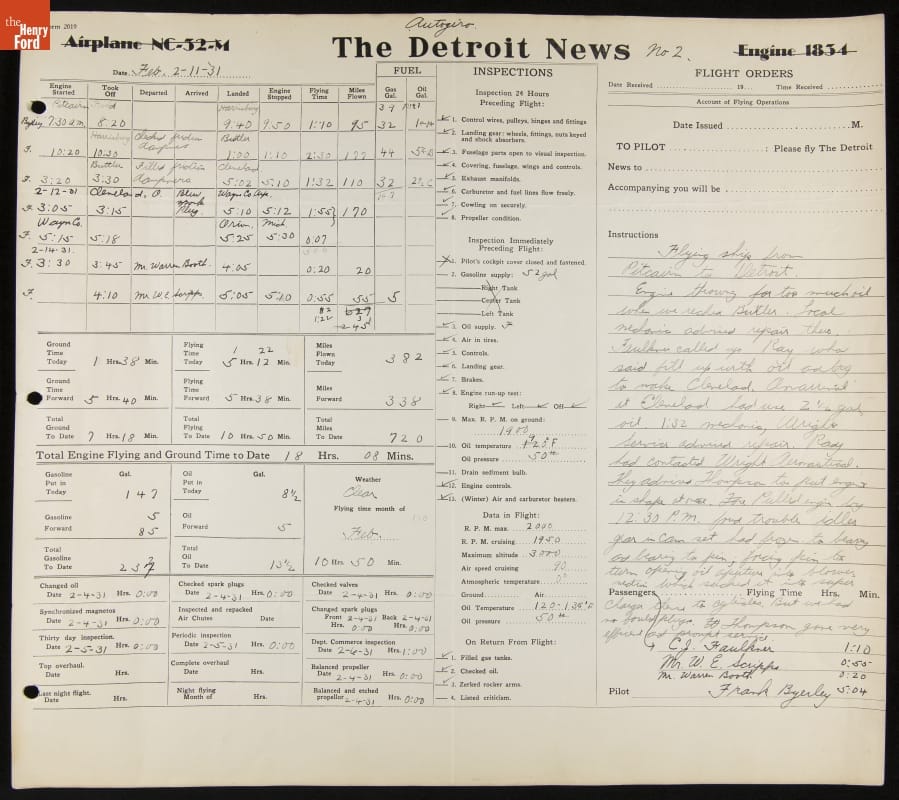 the
Henry
Ford
Form 2019
Autogiro
Airplane NC-32-M
The Detroit News No 2.
Engine 1834
Date Feb. 2-11-31
FUEL
INSPECTIONS
FLIGHT ORDERS
Engine Started
Took Off
Departed
Arrived
Landed
Engine Stopped
Flying Time
Miles Flown
Gas Gal.
Oil Gal.
Pitcairn Field Harrisburg 39
7:30 a.m. 8:20 9:40 9:50 1:10 95 32
Harrisburg Butler
F. 10:20 10:30 1:00 1:10 2:30 177 44
Butler Filled friction dampners Cleveland
F. 3:20 3:30 5:02 5:10 1:32 110 32
2-12-31 Cleveland, O. Wayn Co. Ap.
F. 3:05 3:15 5:10 5:12 1:55 170
Wayn Co. Mich.
F. 5:15 5:18 5:25 5:30 0:07
2-14-31.
F. 3:30 3:45 Mr. Warren Booth 4:05 0:20 20
F. 4:10 Mr. W.E. Scripps. 5:05 5:10 0:55 55 5
Ground Time Today 1 Hrs. 38 Min.
Flying Time Today 5 Hrs. 12 Min.
1 22
Miles Flown Today 382
Ground Time Forward 5 Hrs. 40 Min.
Flying Time Forward 5 Hrs. 38 Min.
Miles Forward 338
Total Ground To Date 7 Hrs. 18 Min.
Total Flying To Date 10 Hrs. 50 Min.
Total Miles To Date 720
Total Engine Flying and Ground Time to Date 18 Hrs. 08 Mins.
Gasoline Put in Today Gal. 147
Oil Put in Today Gal. 8½
Weather Clear
Gasoline Forward 5
85
Oil Forward 5
Flying time month of Feb.
Total Gasoline To Date 237
Total Oil To Date 13½
10 Hrs. 50 Min.
Changed oil Date 2-4-31 Hrs. 0:00
Checked spark plugs Date 2-4-31 Hrs. 0:00
Checked valves Date 2-4-31 Hrs. 0:00
Synchronized magnetos Date 2-4-31 Hrs. 0:00
Inspected and repacked Air Chutes Date
Changed spark plugs Front 2-4-31 Back 2-4-31 Hrs. 0:00 Hrs. 0:00
Thirty day inspection. Date 2-5-31 Hrs. 0:00
Periodic inspection Date 2-5-31 Hrs. 0:00
Dept. Commerce inspection Date 2-6-31 Hrs. 1:00
Top overhaul. Date Hrs.
Complete overhaul Date Hrs.
Balanced propeller Date 2-4-31 Hrs. 0:00
Last night flight. Date Hrs.
Night flying Month of Hrs.
Balanced and etched propeller 2-4-31 Hrs. 0:00
Inspection 24 Hours Preceding Flight:
1. Control wires, pulleys, hinges and fittings
2. Landing gear: wheels, fittings, nuts keyed and shock absorbers.
3. Fuselage parts open to visual inspection.
4. Covering, fuselage, wings and controls.
5. Exhaust manifolds.
6. Carburetor and fuel lines flow freely.
7. Cowling on securely.
8. Propeller condition.
Inspection Immediately Preceding Flight:
1. Pilot's cockpit cover closed and fastened.
2. Gasoline supply: 52 gal
Right Tank
Center Tank
Left Tank
3. Oil supply.
4. Air in tires.
5. Controls.
6. Landing gear.
7. Brakes.
8. Engine run-up test:
Right Left Off
9. Max. R. P. M. on ground:
1900
10. Oil temperature
Oil pressure 50#
11. Drain sediment bulb.
12. Engine controls.
13. (Winter) Air and carburetor heaters.
Data in Flight:
R. P. M. max. 2000
R. P. M. cruising 1950
Maximum altitude 3000
Air speed cruising 90
Atmospheric temperature 0°
Ground Air
Oil Temperature 120-135°F
Oil pressure 50#
On Return From Flight:
1. Filled gas tanks.
2. Checked oil.
3. Zerked rocker arms.
4. Listed criticism.
Date Received 19 Time Received
Account of Flying Operations
Date Issued M.
TO PILOT : Please fly The Detroit
News to
Accompanying you will be
Instructions
Flying ship from
Pitcairn to Detroit.
Engine throwing far too much oil
when we reached Butler. Local
mechanic advised repair there.
Faulkner called up Ray who
said fill up with oil and try
to make Cleveland. On arrival
at Cleveland had use 2½ gal
oil. 1:32 Wright
Service advised repair. Ray
had contacted Wright Aeronautical.
They advised Thompson to put engine
in shape at once.
12:30 P.M. found trouble idler
gear in cam set had frozen to bearing
and bearing to pin, forcing pin to
turn opening oil into blower
section which sucked it into super
charger thence to cylinders. But we had
no fouled plugs. Thompson gave very
efficient and prompt service
Passengers Flying Time Hrs. Min.
C.J. Faulkner 1:10
Mr. W. E. Scripps 0:50
Mr. Warren Booth 0:20
Pilot Frank Byerley 5:04